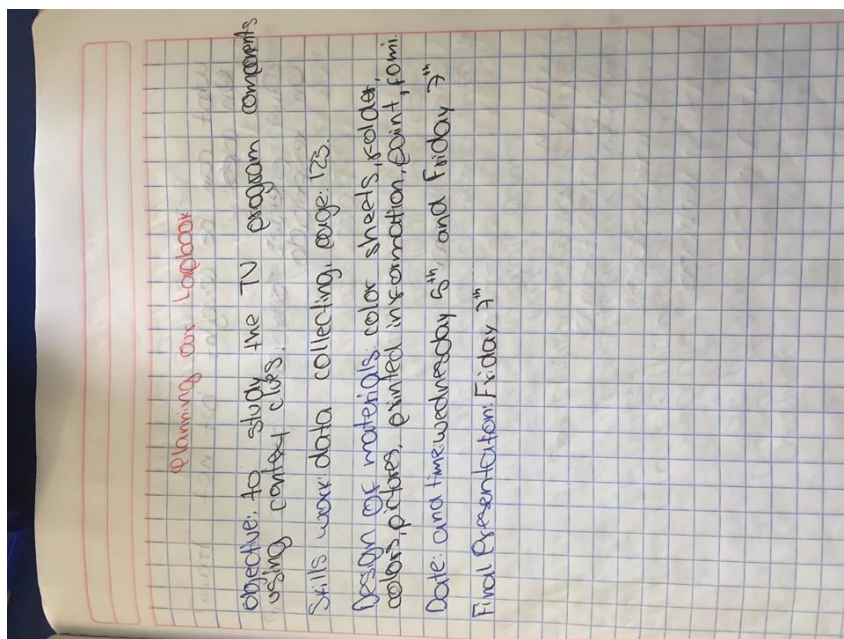 Planning our Lapbook
Objective: to study the TV program components
using context clues.
Skills work: data collecting, page: 123.
Design of materials: color sheets, folder,
colors, pictures, printed information, paint, fomi.
Date: and time: wednesday 5th and Friday 7th
Final Presentation: Friday 7th